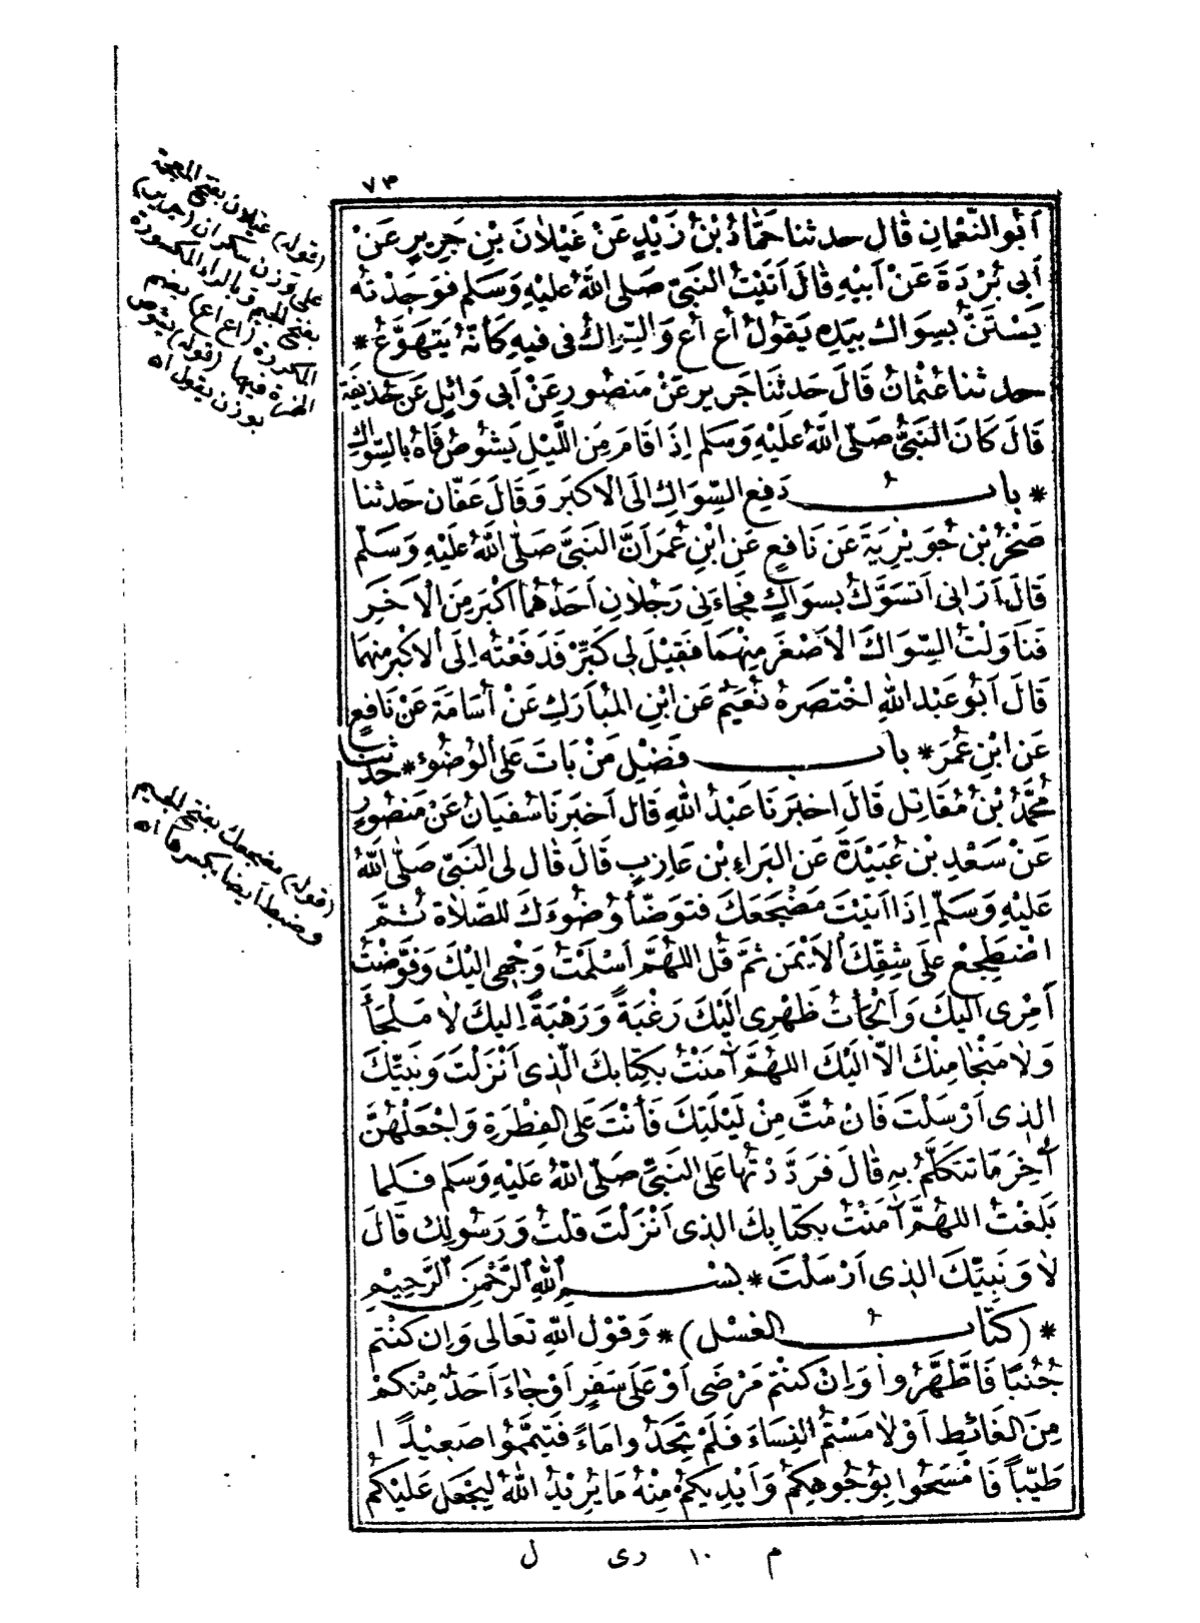 ٧٣
أَبُو النُّعْمَانِ قَالَ حدثنا حَمَّادُ بْنُ زَيْدٍ عَنْ غَيْلَانَ بْنِ جَرِيرٍ عَنْ
أَبِى بُرْدَةَ عَنْ أَبِيْهِ قَالَ أَتَيْتُ النَّبِىَّ صَلَّى اللّٰهُ عَلَيْهِ وَسَلَّم فَوَجَدْتهُ
يَسْتَنُّ بِسِوَاكٍ بِيَدِهِ يَقُولُ أُعْ أُعْ وَالسِّوَاكُ فى فِيهِ كَأَنَّهُ يَتَهَوَّعُ *
حدثنا عُثْمَانُ قَالَ حَدثنَا جَرِير عَنْ مَنْصُورٍ عَنْ أَبى وَائِلٍ عَنْ حُذَيْفَةَ
قَالَ كَانَ النَّبِىُّ صَلّى اللّٰهُ عَلَيْهِ وَسَلم إِذَا قَامَ مِنَ اللَّيْلِ يَشُوصُ فَاهُ بِالسِّوَاكِ
* بابُ دَفعِ السِّوَاكِ إلَى الأكْبَرِ وَقَالَ عَفّان حَدثنا
صَخْرُ بْنُ جُوَيْرِيَةَ عَنْ نَافِعٍ عَنِ ابْنِ عُمَرَ أَنَّ النَّبِىَّ صَلّى اللّٰهُ عَلَيْهِ وَسَلّم
قَالَ أَرَانِى أَتَسَوَّكُ بِسِوَاكٍ فَجَاءَنِى رَجُلَانِ أَحَدُهُمَا أَكْبَرُ مِنَ الْآخَرِ
فَنَاوَلْتُ السِّوَاكَ الْأَصْغَرَ مِنْهُمَا فَقِيْلَ لِى كَبِّرْ فَدَفَعْتُه إِلَى الْأَكْبَرِ مِنْهُمَا
قَالَ أَبُو عَبْدِ اللّٰهِ اخْتَصَرَهُ نُعَيْمٌ عَنِ ابْنِ المُبَارَكِ عَنْ أُسَامَةَ عَنْ نَافِعٍ
عَنِ ابْنِ عُمَرَ * بابُ فَضْلِ مَنْ بَاتَ عَلَى الْوُضُوْءِ * حَدثنا
مُحَمَّدُ بْنُ مُقَاتِلٍ قَالَ اخبَرَنَا عَبْدُ اللّٰهِ قَالَ أَخبَرَنَا سُفيَانُ عَنْ مَنصُورٍ
عَنْ سَعْدِ بْنِ عُبَيْدَةَ عَنِ البَرَاءِ بْنِ عَازِبٍ قَالَ قَالَ لِى النَّبِىُّ صَلّى اللّٰهُ
عَلَيْهِ وَسَلّمَ إِذَا أَتَيْتَ مَضْجَعَكَ فتَوَضّأ وُضُوءَكَ للصَّلَاةِ ثُمَّ
اضْطَجِعْ عَلَى شِقِّكَ الأَيْمَنِ ثُمَّ قُلِ اللّٰهُمَّ أَسْلَمْتُ وَجْهِى إلَيْكَ وَفَوَّضْتُ
أَمْرِى إلَيْكَ وَأَلْجَأْتُ ظَهْرِى إلَيْكَ رَغْبَةً وَرَهْبَةً إلَيْكَ لَا مَلْجَأَ
وَلَا مَنْجَا مِنْكَ الَّا إلَيْكَ اللهُمَّ آمَنْتُ بِكِتَابِكَ الّذِى أَنْزَلْتَ وَنَبِيّكَ
الذِى أَرْسَلْتَ فَانْ مُتَّ مِنْ لَيْلَتِكَ فَأَنْتَ عَلَى الفِطْرَةِ وَاجْعَلْهُنَّ
آخِرَ مَا تتَكَلَّمُ بِهِ قَالَ فَرَدَّدْتُهَا عَلَى النَّبِىِّ صَلّى اللّٰهُ عَلَيْهِ وَسَلم فَلما
بَلَغْتُ اللهُمَّ آمَنْتُ بِكِتَابِكَ الذِى أَنْزَلْتَ قلْتُ وَرَسُولِكَ قَالَ
لَا وَنَبِيّكَ الذِى أَرْسَلْتَ * بِسْمِ اللّٰهِ الرَّحْمٰنِ الرَّحِيْمِ
* (كتَابُ الغُسْلِ) * وَقوْلِ اللّٰهِ تَعَالَى وَإِن كُنْتُم
جُنُبًا فَاطَّهَّرُوا وَإِنْ كنتُم مَرْضَى أَوْ عَلَى سَفَرٍ أَوْ جَاءَ أَحَدٌ مِنْكُمْ
مِنَ الغَائِطِ أَوْ لَامَسْتُم النِّسَاءَ فَلَمْ تَجِدُوا مَاءً فَتَيَمَّمُوا صَعِيْدًا
طَيِّبًا فَامْسَحُوا بِوُجُوهِكُمْ وَأَيْدِيكُمْ مِنْهُ مَا يُرِيْدُ اللّٰهُ لِيَجْعَلَ عَلَيْكُمْ
(قوله) غيلان بفتح المعجمة
على وزن سكران (جرير)
بفتح الجيم وبالراء المكسورة
المكررة (اع اع) بضم
الهمزة فيها (قوله) يشوص
بوزن يقول اه
(قوله) مضجعك بفتح الجيم
وضبط أيضا بكسرها اه
م ١٠ رى ل